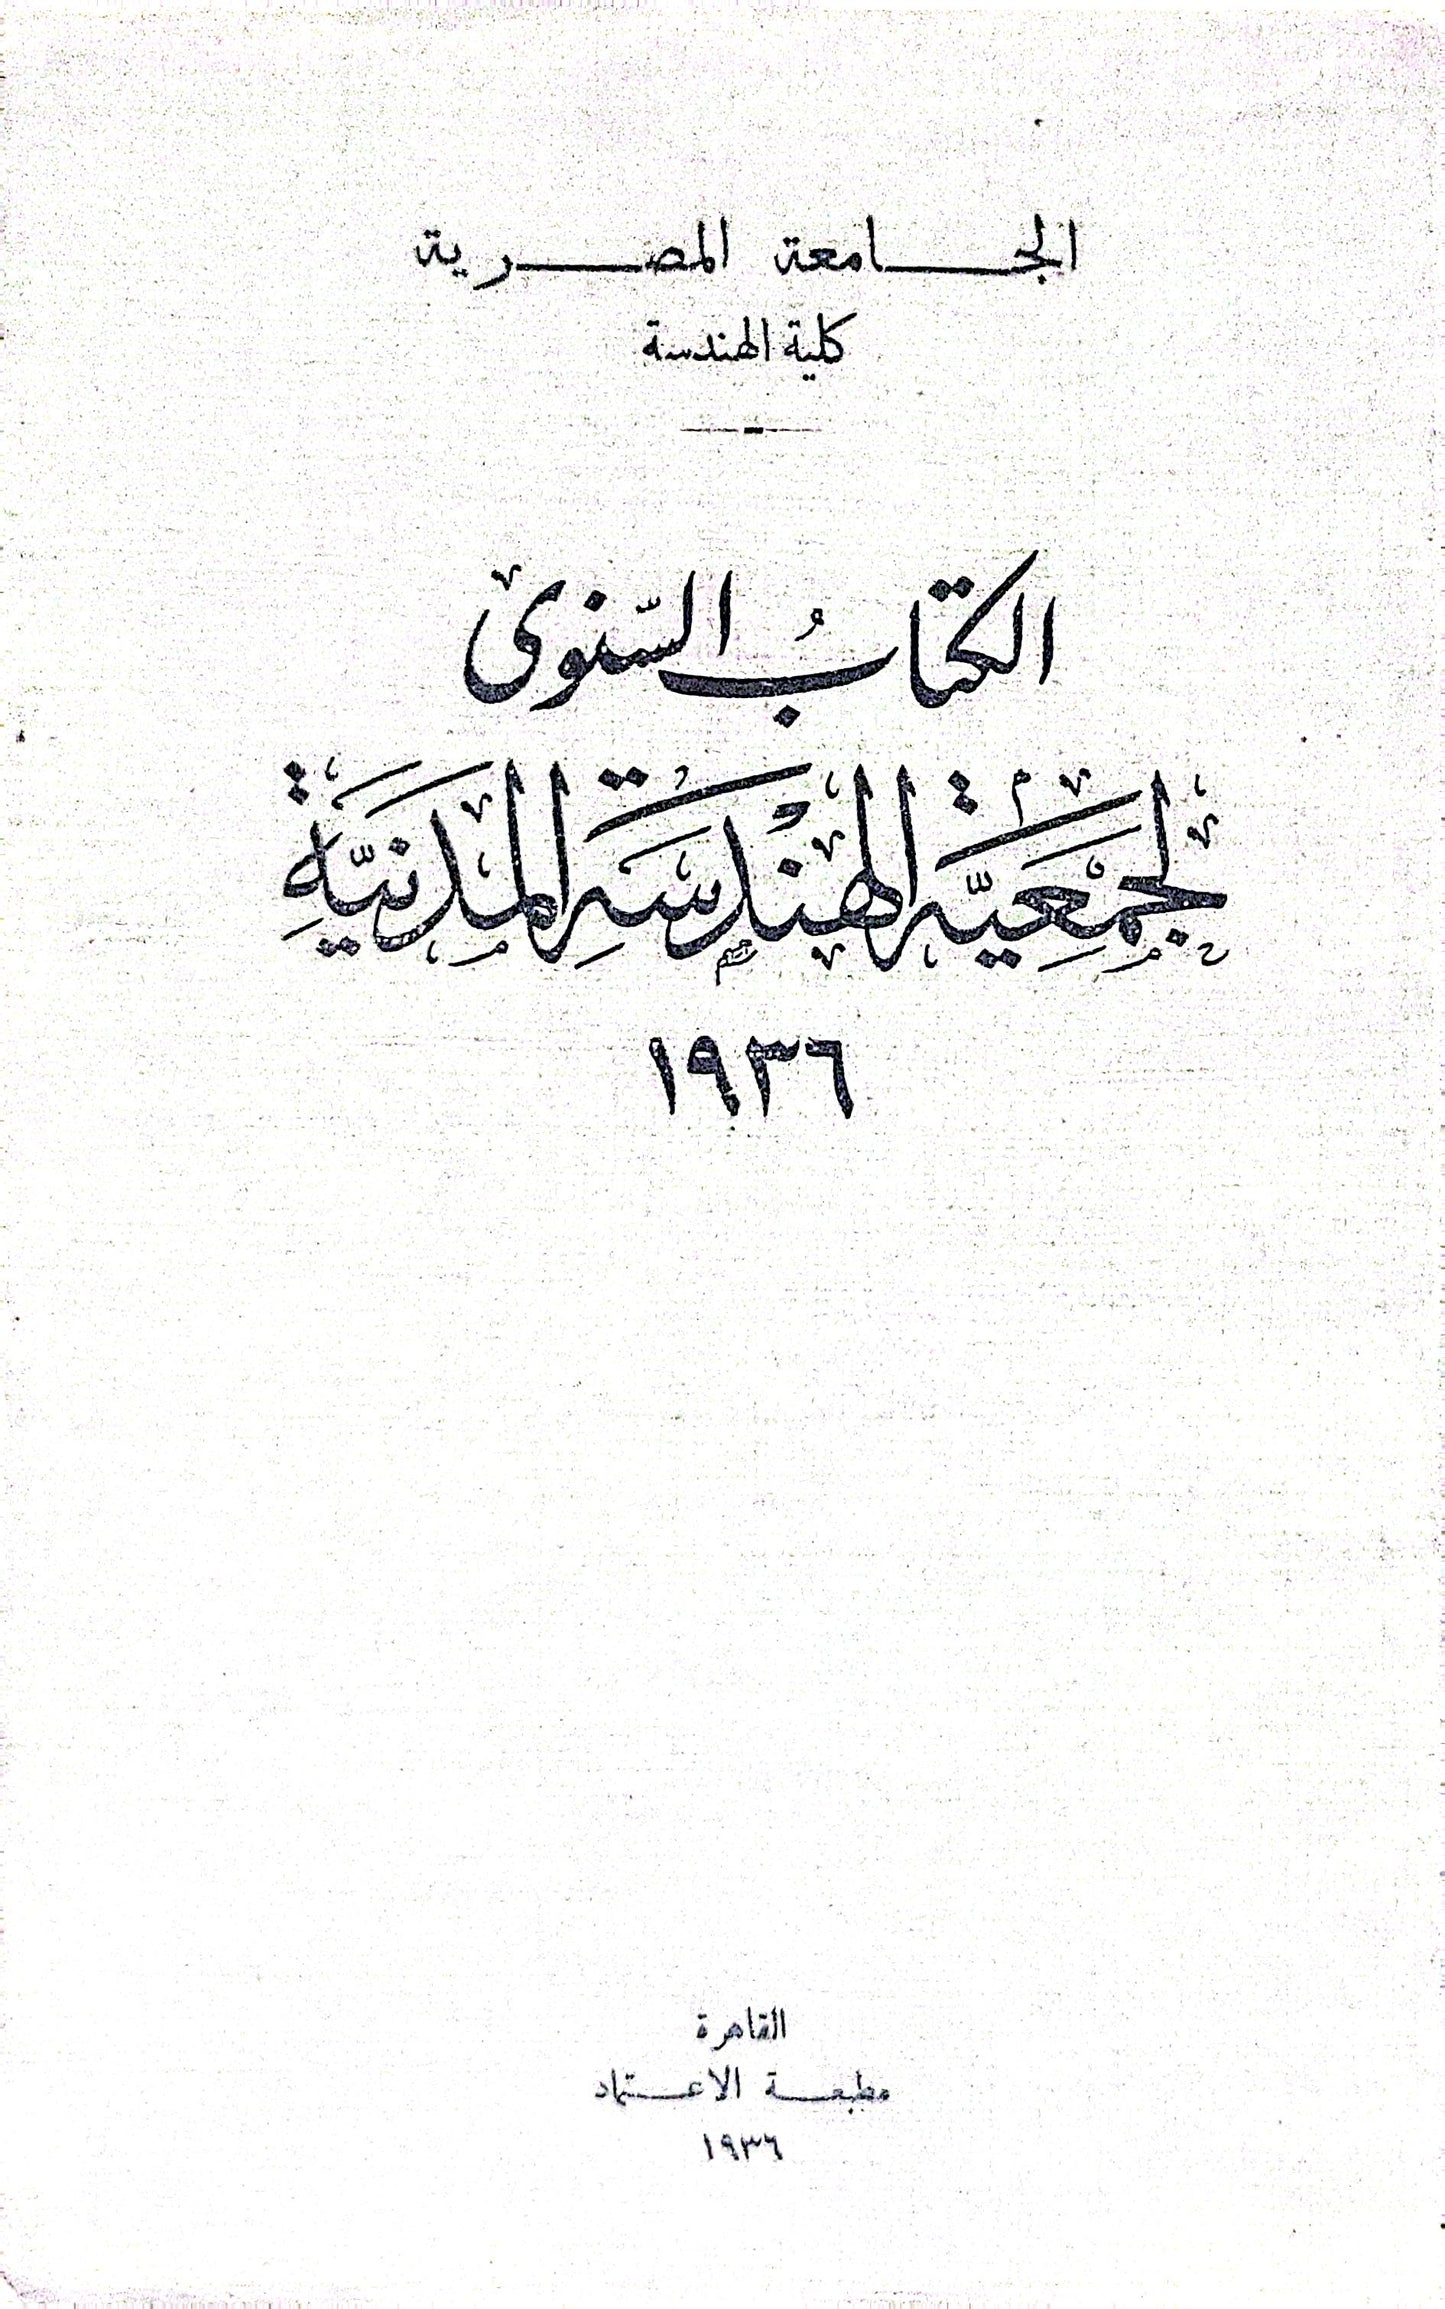 الجامعة المصرية
كلية الهندسة
الكتابُ السّنوى
لجمْعِيَّة الهنْدسَةِ المدَنيَّةِ
١٩٣٦
القاهرة
مطبعة الاعتماد
١٩٣٦